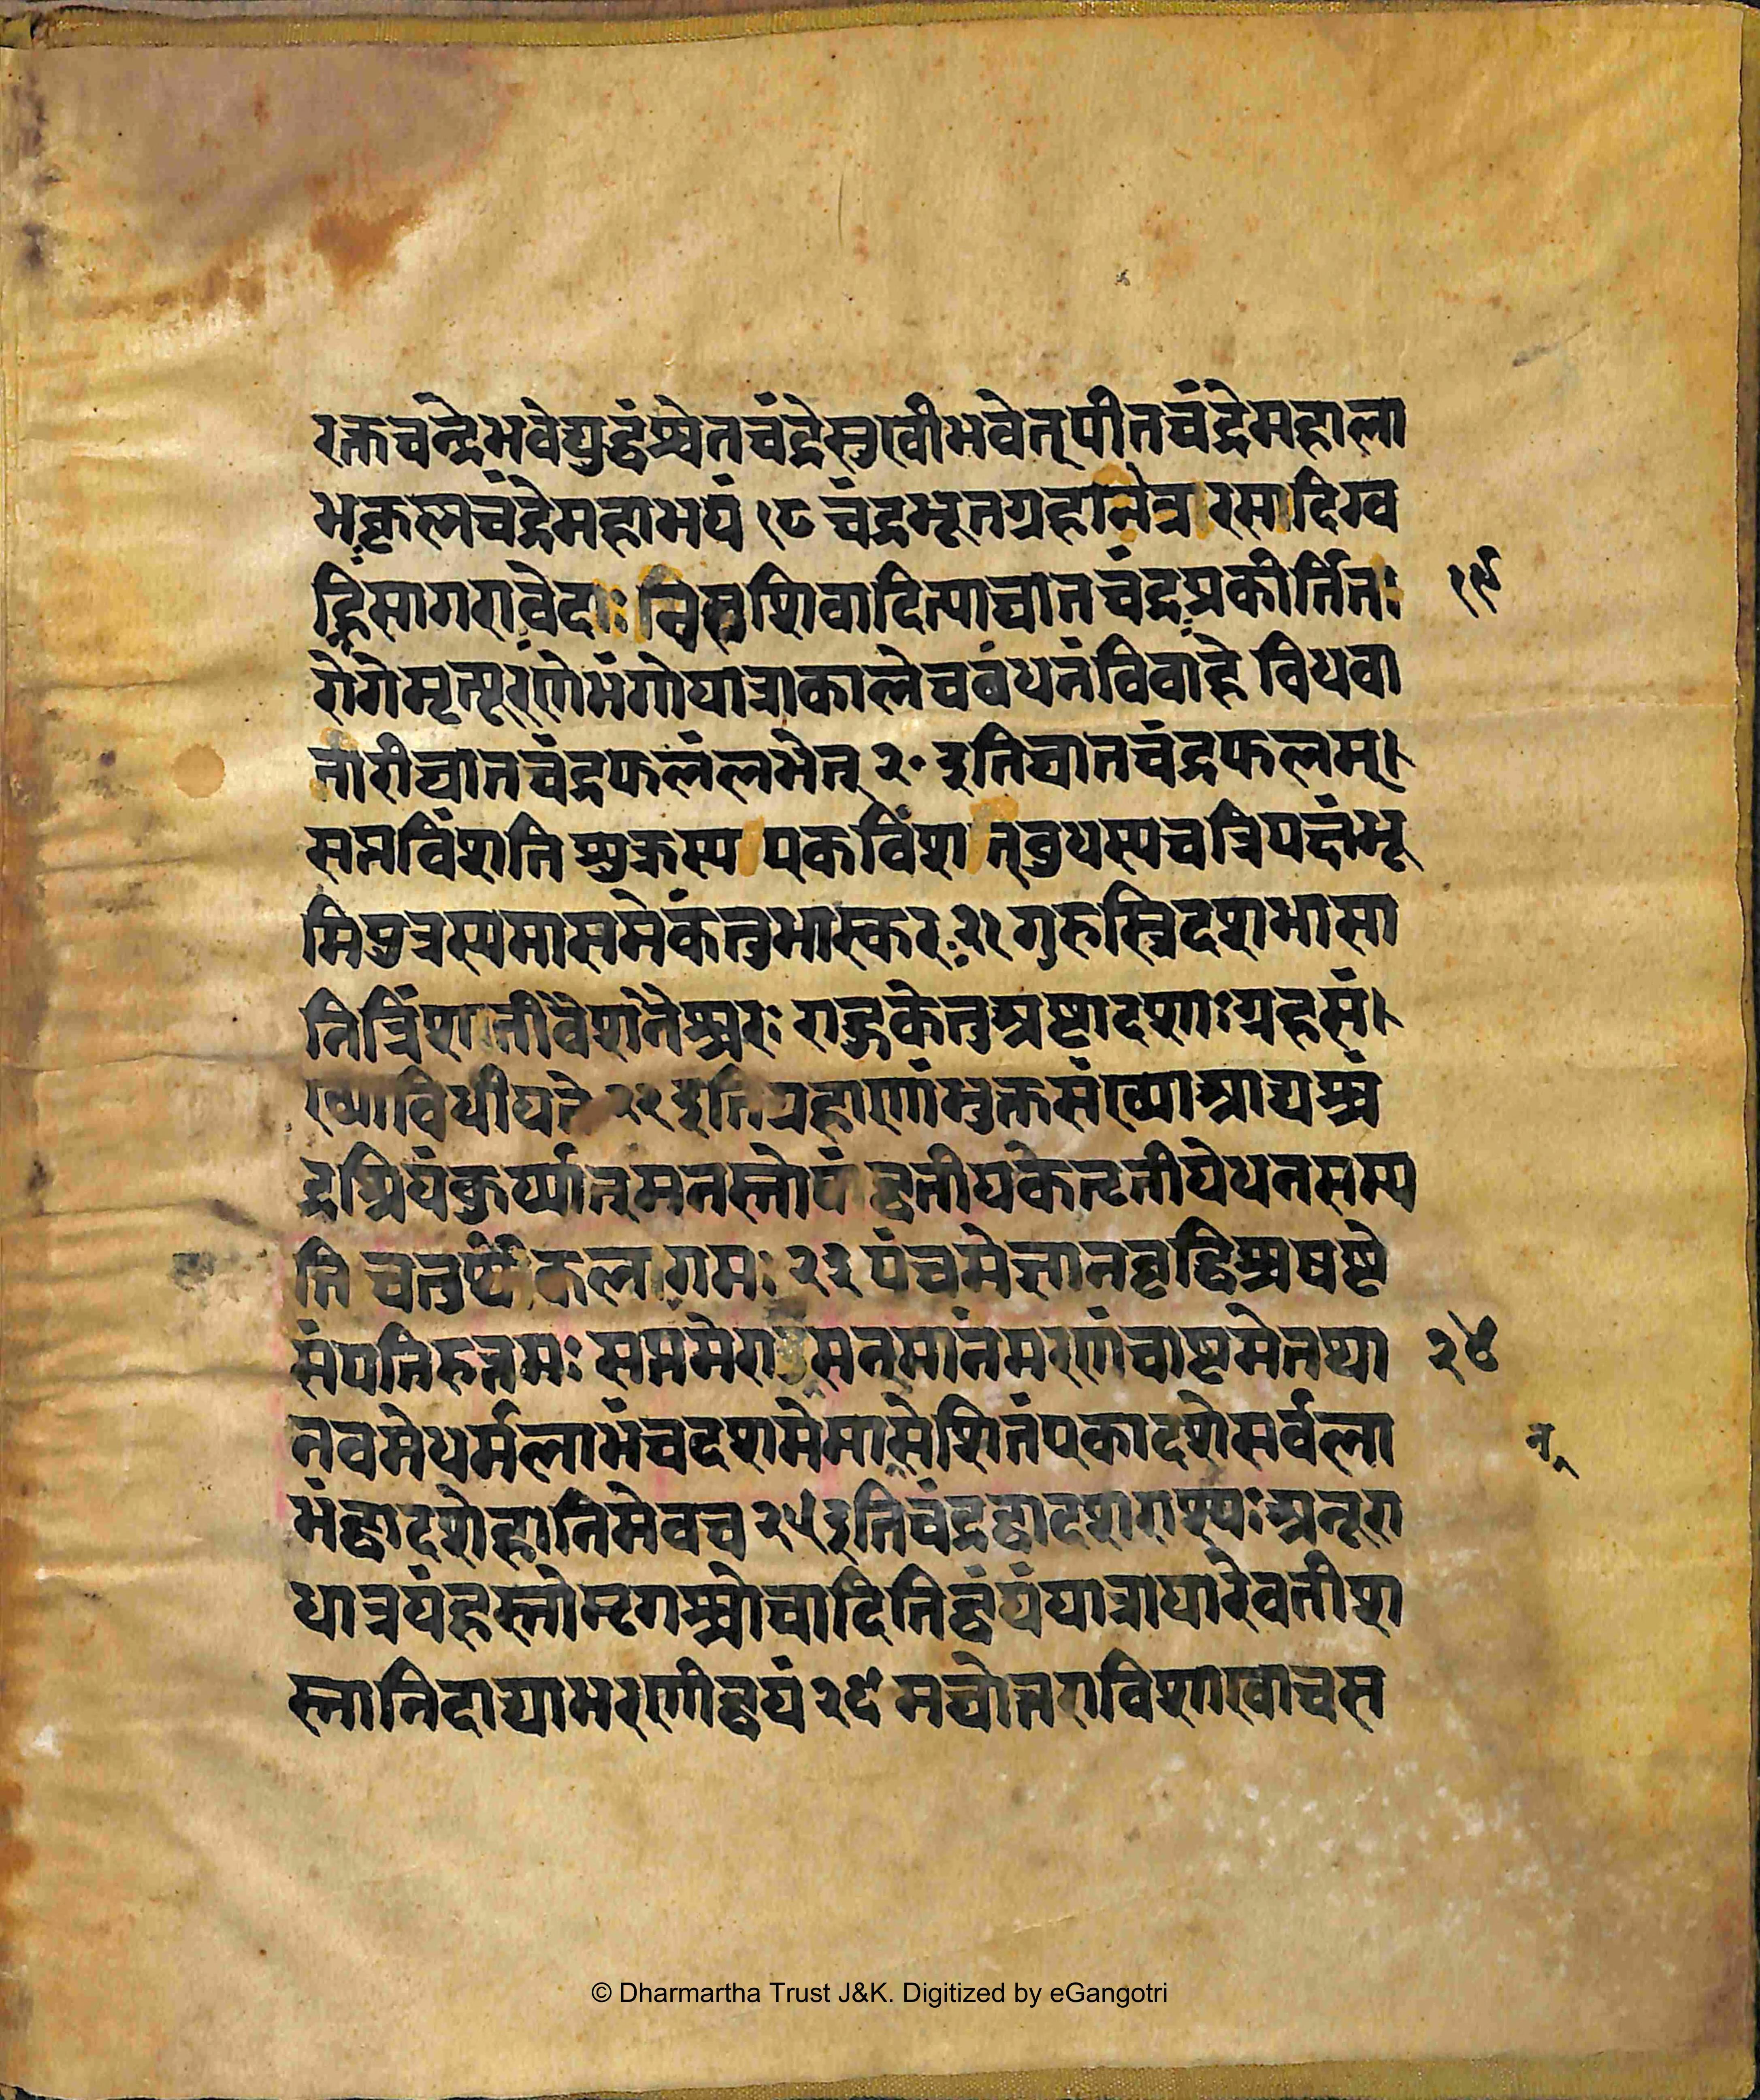 रक्तचन्द्रेभवेद्युद्धंश्वेतचंद्रेसुखीभवेत्पीतचंद्रेमहाला
भकृष्णचंद्रेमहाभयं १८ चंद्रभूतग्रहनेत्रारसादिग्व
ह्निसागरावेदाः शिवादित्याघातचंद्रप्रकीर्तितः १९
रोगेमृत्युरणेभंगोयात्राकालेचबंधनंविवाहे विधवा
नारीघातचंद्रफलंलभेत् २० इतिघातचंद्रफलम्।
सप्तविंशति शुक्रस्य एकविंशत्बुधस्यचत्रिपक्षंभू
मिपुत्रस्यमासमेकंतुभास्करः२१ गुरुस्त्रिदशभासा
नित्रिंशतीवैशनैश्चरः राहुकेतुअष्टादशाःग्रहसं।
ख्याविधीयते २२ इतिग्रहाणांभुक्तसंख्याआद्यश्चं
द्रश्रियंकुर्य्यात्मनस्तोषंद्वतीयकेतृतीयेधनसम्प
ति चतुर्थेकलागमः २३ पंचमेज्ञानवृद्धिश्चषष्टे
संपतिरुत्तमः सप्तमेराजसत्मानंमरणंचाष्टमेतथा २४
नवमेधर्मलाभंचदशमेमासेशितंएकादशेसर्वला त्
भंद्वादशेहानिमेवच २५ इतिचंद्रद्वादशराश्यःअनूरा
धात्रयंहस्तोमृगश्चोचादितिद्वयंयात्रायारेवतीश
स्तानिदाद्याभरणीद्वयं २६ मघोत्तराविशाखाचस
© Dharmartha Trust J&K. Digitized by eGangotri